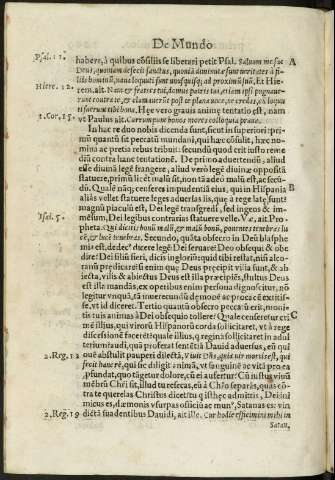 De Mundo
Psal. 11.
habere, à quibus cōsiliis se liberari petit Psal. Saluum me fac
A
Deus, quoniam defecit sanctus, quoniā diminutæ sunt veritates à fi-
liis hominū, vana loquuti sunt unusquisq; ad proximū suū. Et Hie-
Hiere. 12.
rem. ait. Nam & fratres tui, domus patris tui, etiam ipsi pugnaue-
runt contra te, & clamauerūt post te plena voce, ne credas, cū loquu
ti fuerint tibi bona. Hęc vero grauis anime tentatio est, nam
1. Cor. 15.
vt Paulus ait. Corrumpunt bonos mores colloquia praua.
In hac re duo nobis dicenda sunt, sicut in superiori: pri-
mū quantū sit peccatū mundani, qui hæc cōsulit, hæc no-
mina ac pretia rebus tribuit: secundū quod erit iusto reme
diū contra hanc tentationē. De primo aduertendū, aliud
esse diuinā legē frangere, aliud verò legē diuinæ oppositā
statuere, primū licèt malū sit, non tā adeò malū est, ac secū-
dū. Quale nāq; censeres impudentiā eius, qui in Hispania
B
aliàs vellet statuere leges aduersas iis, quæ à rege latę sunt?
magnū piaculū est, Dei legē transgredi, sed ingens & im-
Isai. 5.
mēsum, Dei legibus contrarias statuere velle. Væ, ait Pro-
pheta. Qui dicitis bonū malū, & malū bonū, ponentes tenebras lu
cē, & lucē tenebras. Secundo, quāta obsecro in Deū blasphe
mia est, dedec dicere legē Dei seruare? Deo obsequi & obe
dire? Dei filiū fieri, dicis ingloriū: quod tibi restat, nisi alco-
rani prædicare? si enim quę Deus præcipit vilia sunt, & ab
iecta, vilis & abiectus Deus est illa præcipiēs, stultus Deus
est illa mandās, ex operibus enim persona dignoscitur, nō
legitur vnquā, tā inuerecundū dęmonē ac procacē extitis-
se, vt id diceret. Tertio quantū obsecro peccatū erit, moni-
tis tuis animas à Dei obsequio tollere? Quale censeretur cri
C
mē illius, qui virorū Hispanorū corda sollicitaret, vt à rege
discessionē facerēt? quale illius, q; reginā sollicitaret in adul
terium? audi, quā proferat sentētiā Dauid aduersus, eū qui
2. Reg. 12
ouē abstulit pauperi dilectā, Viuit Dñs, quia vir mortis est, qui
fecit hanc rē, qui sic diligit animā, vt sanguinē ac vitā pro ea
pfundat, quo tāgetur dolore, cū ei aufertur? Cū iustus viuū
mēbrū Chr̄i sit, illud tu resecas, eū à Chr̄o separās, quas cō-
tra te querelas Christus dicet? tu q́ isthęc admittis, Dei ini
micus es, dęmonū vsurpas officiū ac mun⁹, Satanas es: vin
2. Reg. 19
dictā suadentibus Dauidi, ait ille. Cur hodie efficimini mihi in
Satan,